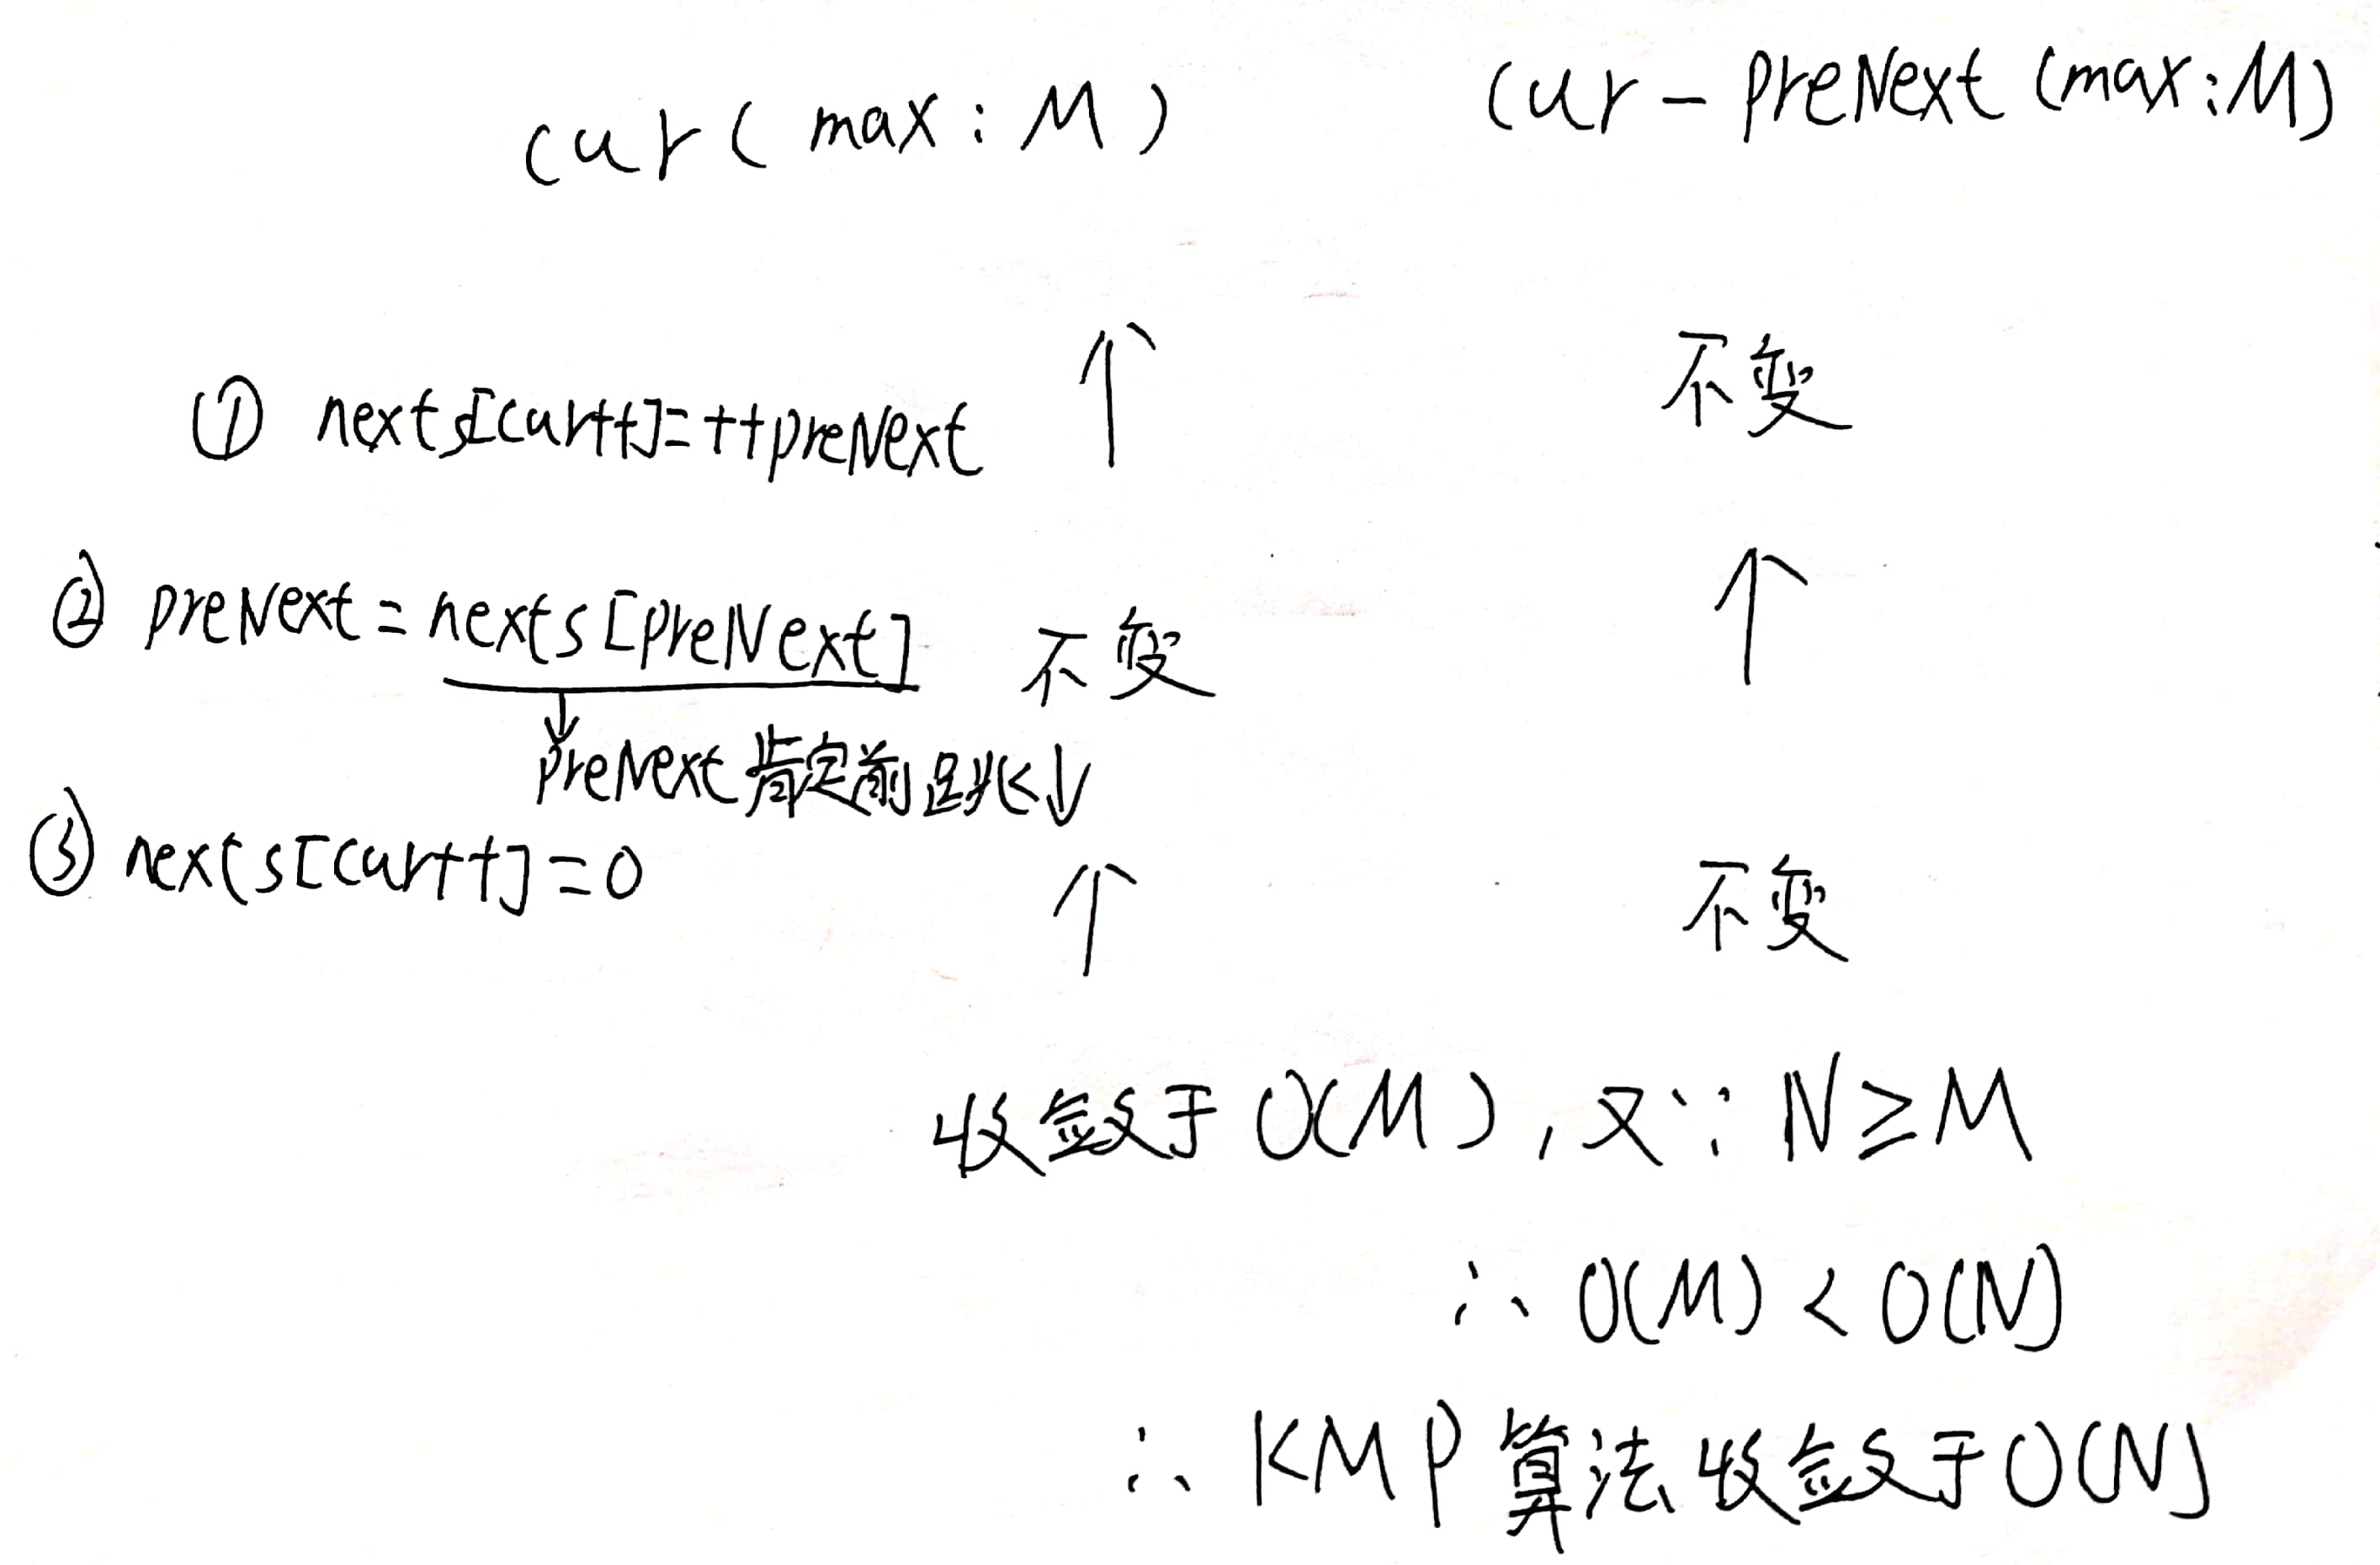 cur(max:M) cur-preNext(max:M)
① nexts[cur++]=++preNext ↑ 不变
② preNext=nexts[preNext] 不变 ↑
↓
preNext肯定前跳↓
③ nexts[cur++]=0 ↑ 不变
收敛于O(M),又∵N≥M
∴O(M)<O(N)
∴KMP算法收敛于O(N)